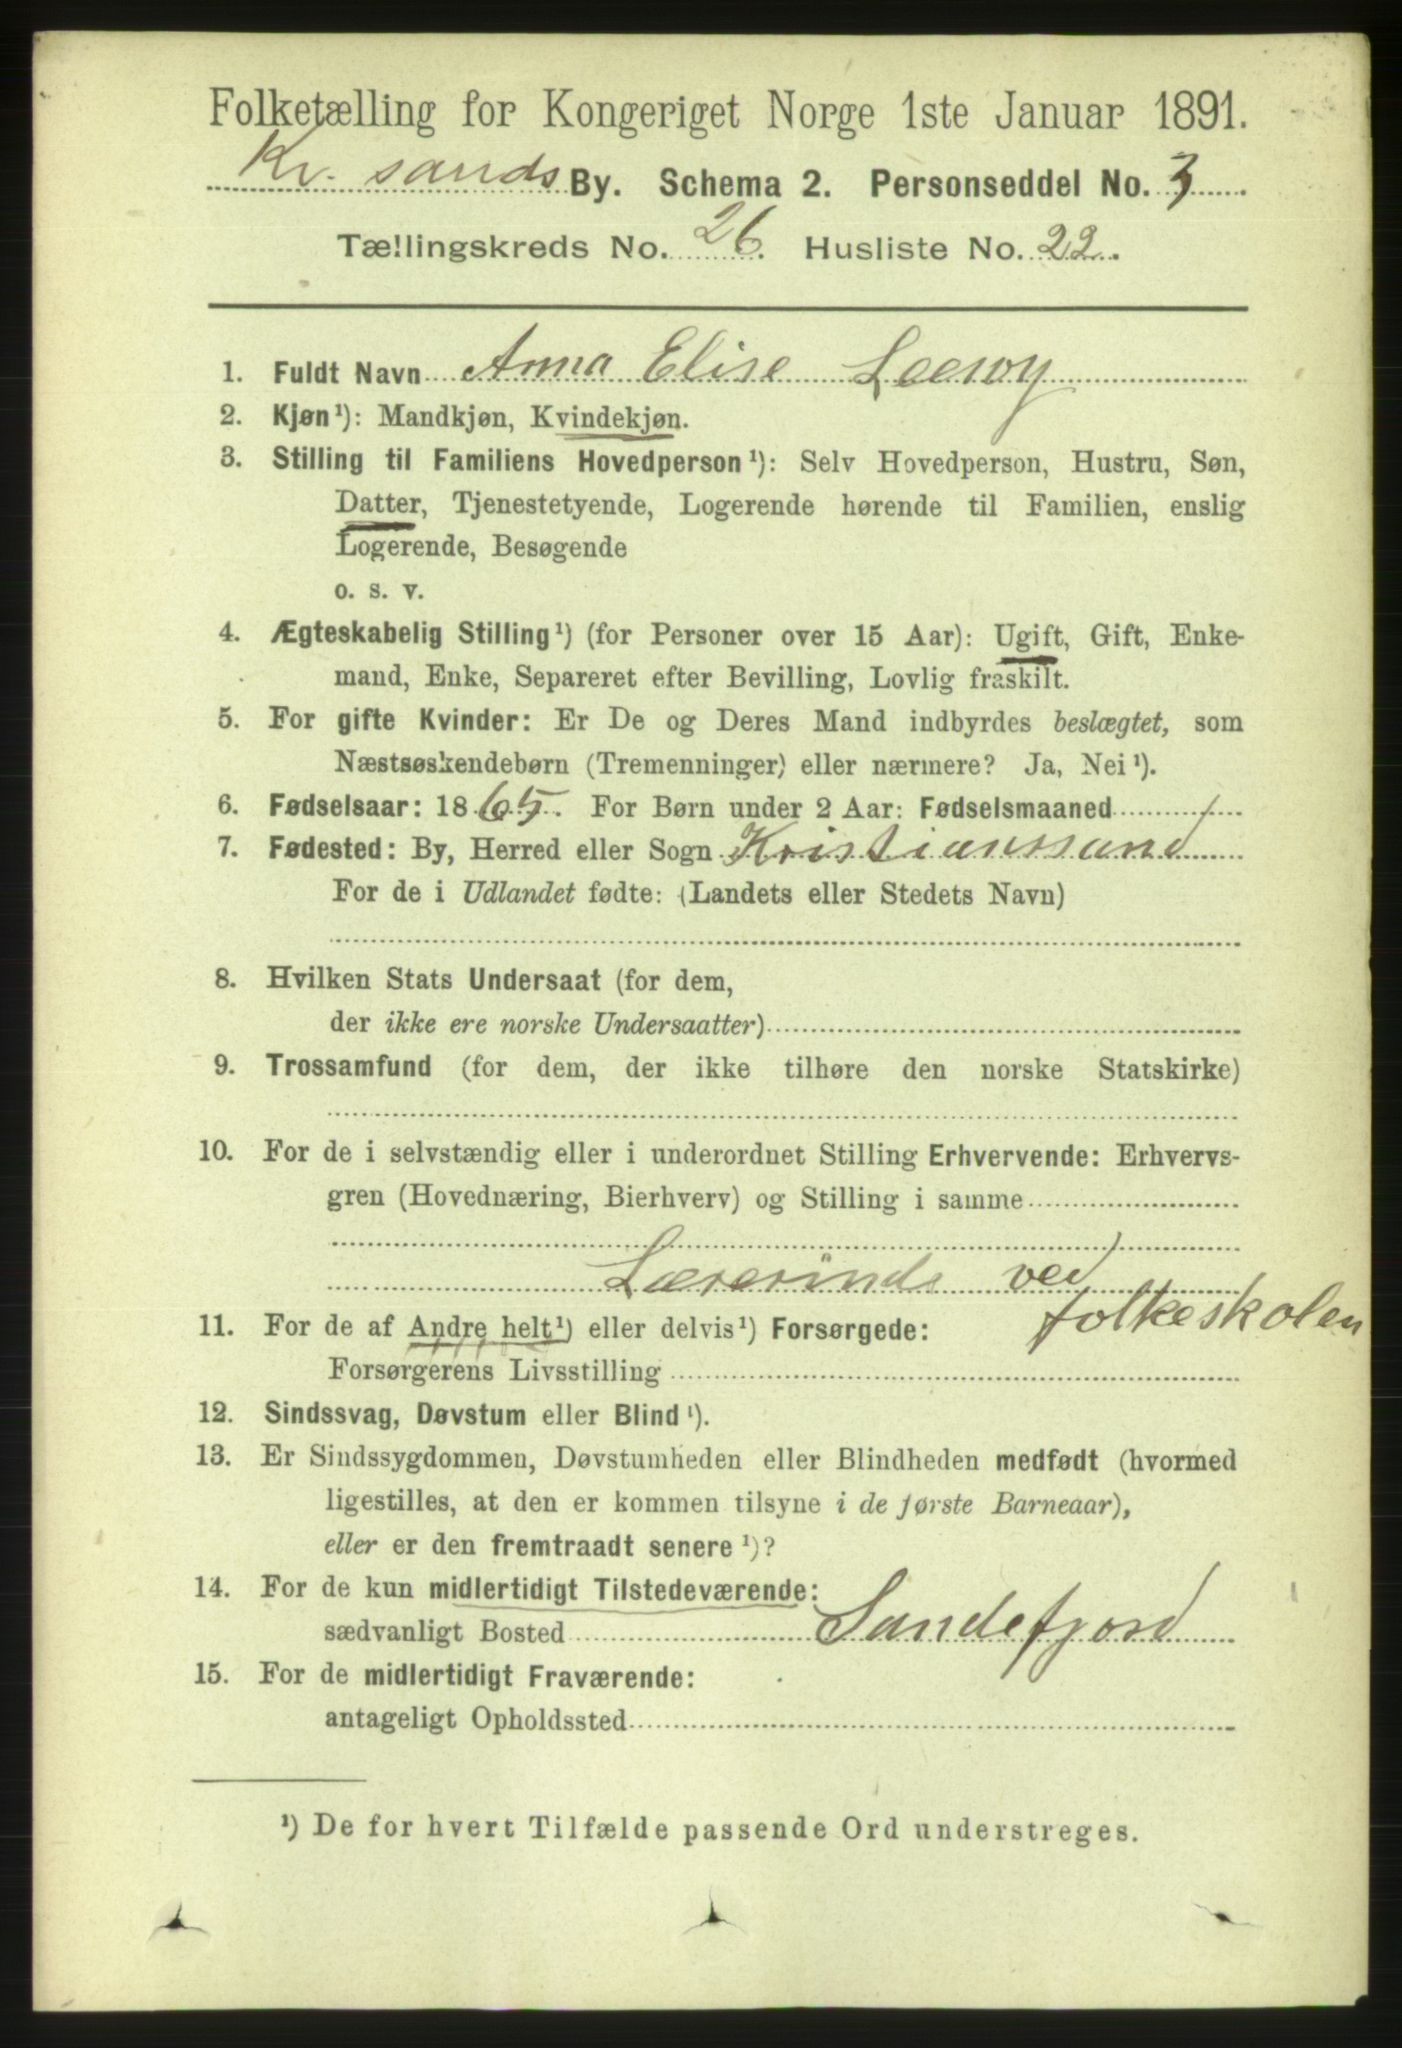 Folketælling for Kongeriget Norge 1ste Januar 1891.
Kr. sands By. Schema 2. Personseddel No. 3
Tællingskreds No. 26. Husliste No. 22.
1. Fuldt Navn Anna Elise
2. Kjøn ¹): Mandkjøn, Kvindekjøn.
3. Stilling til Familiens Hovedperson ¹): Selv Hovedperson, Hustru, Søn,
Datter, Tjenestetyende, Logerende hørende til Familien, enslig
Logerende, Besøgende
o. s. v.
4. Ægteskabelig Stilling ¹) (for Personer over 15 Aar): Ugift, Gift, Enke-
mand, Enke, Separeret efter Bevilling, Lovlig fraskilt.
5. For gifte Kvinder: Er De og Deres Mand indbyrdes beslægtet, som
Næstsøskendebørn (Tremenninger) eller nærmere? Ja, Nei ¹).
6. Fødselsaar: 1865. For Børn under 2 Aar: Fødselsmaaned
7. Fødested: By, Herred eller Sogn Kristianssand
For de i Udlandet fødte: (Landets eller Stedets Navn)
8. Hvilken Stats Undersaat (for dem,
der ikke ere norske Undersaatter)
9. Trossamfund (for dem, der ikke tilhøre den norske Statskirke)
10. For de i selvstændig eller i underordnet Stilling Erhvervende: Erhvervs-
gren (Hovednæring, Bierhverv) og Stilling i samme
Lærerinde ved
folkeskolen
11. For de af Andre helt ¹) eller delvis ¹) Forsørgede:
Forsørgerens Livsstilling
12. Sindssvag, Døvstum eller Blind ¹).
13. Er Sindssygdommen, Døvstumheden eller Blindheden medfødt (hvormed
ligestilles, at den er kommen tilsyne i de første Barneaar),
eller er den fremtraadt senere ¹)?
14. For de kun midlertidigt Tilstedeværende:
sædvanligt Bosted Sandefjord
15. For de midlertidigt Fraværende:
antageligt Opholdssted
¹) De for hvert Tilfælde passende Ord understreges.